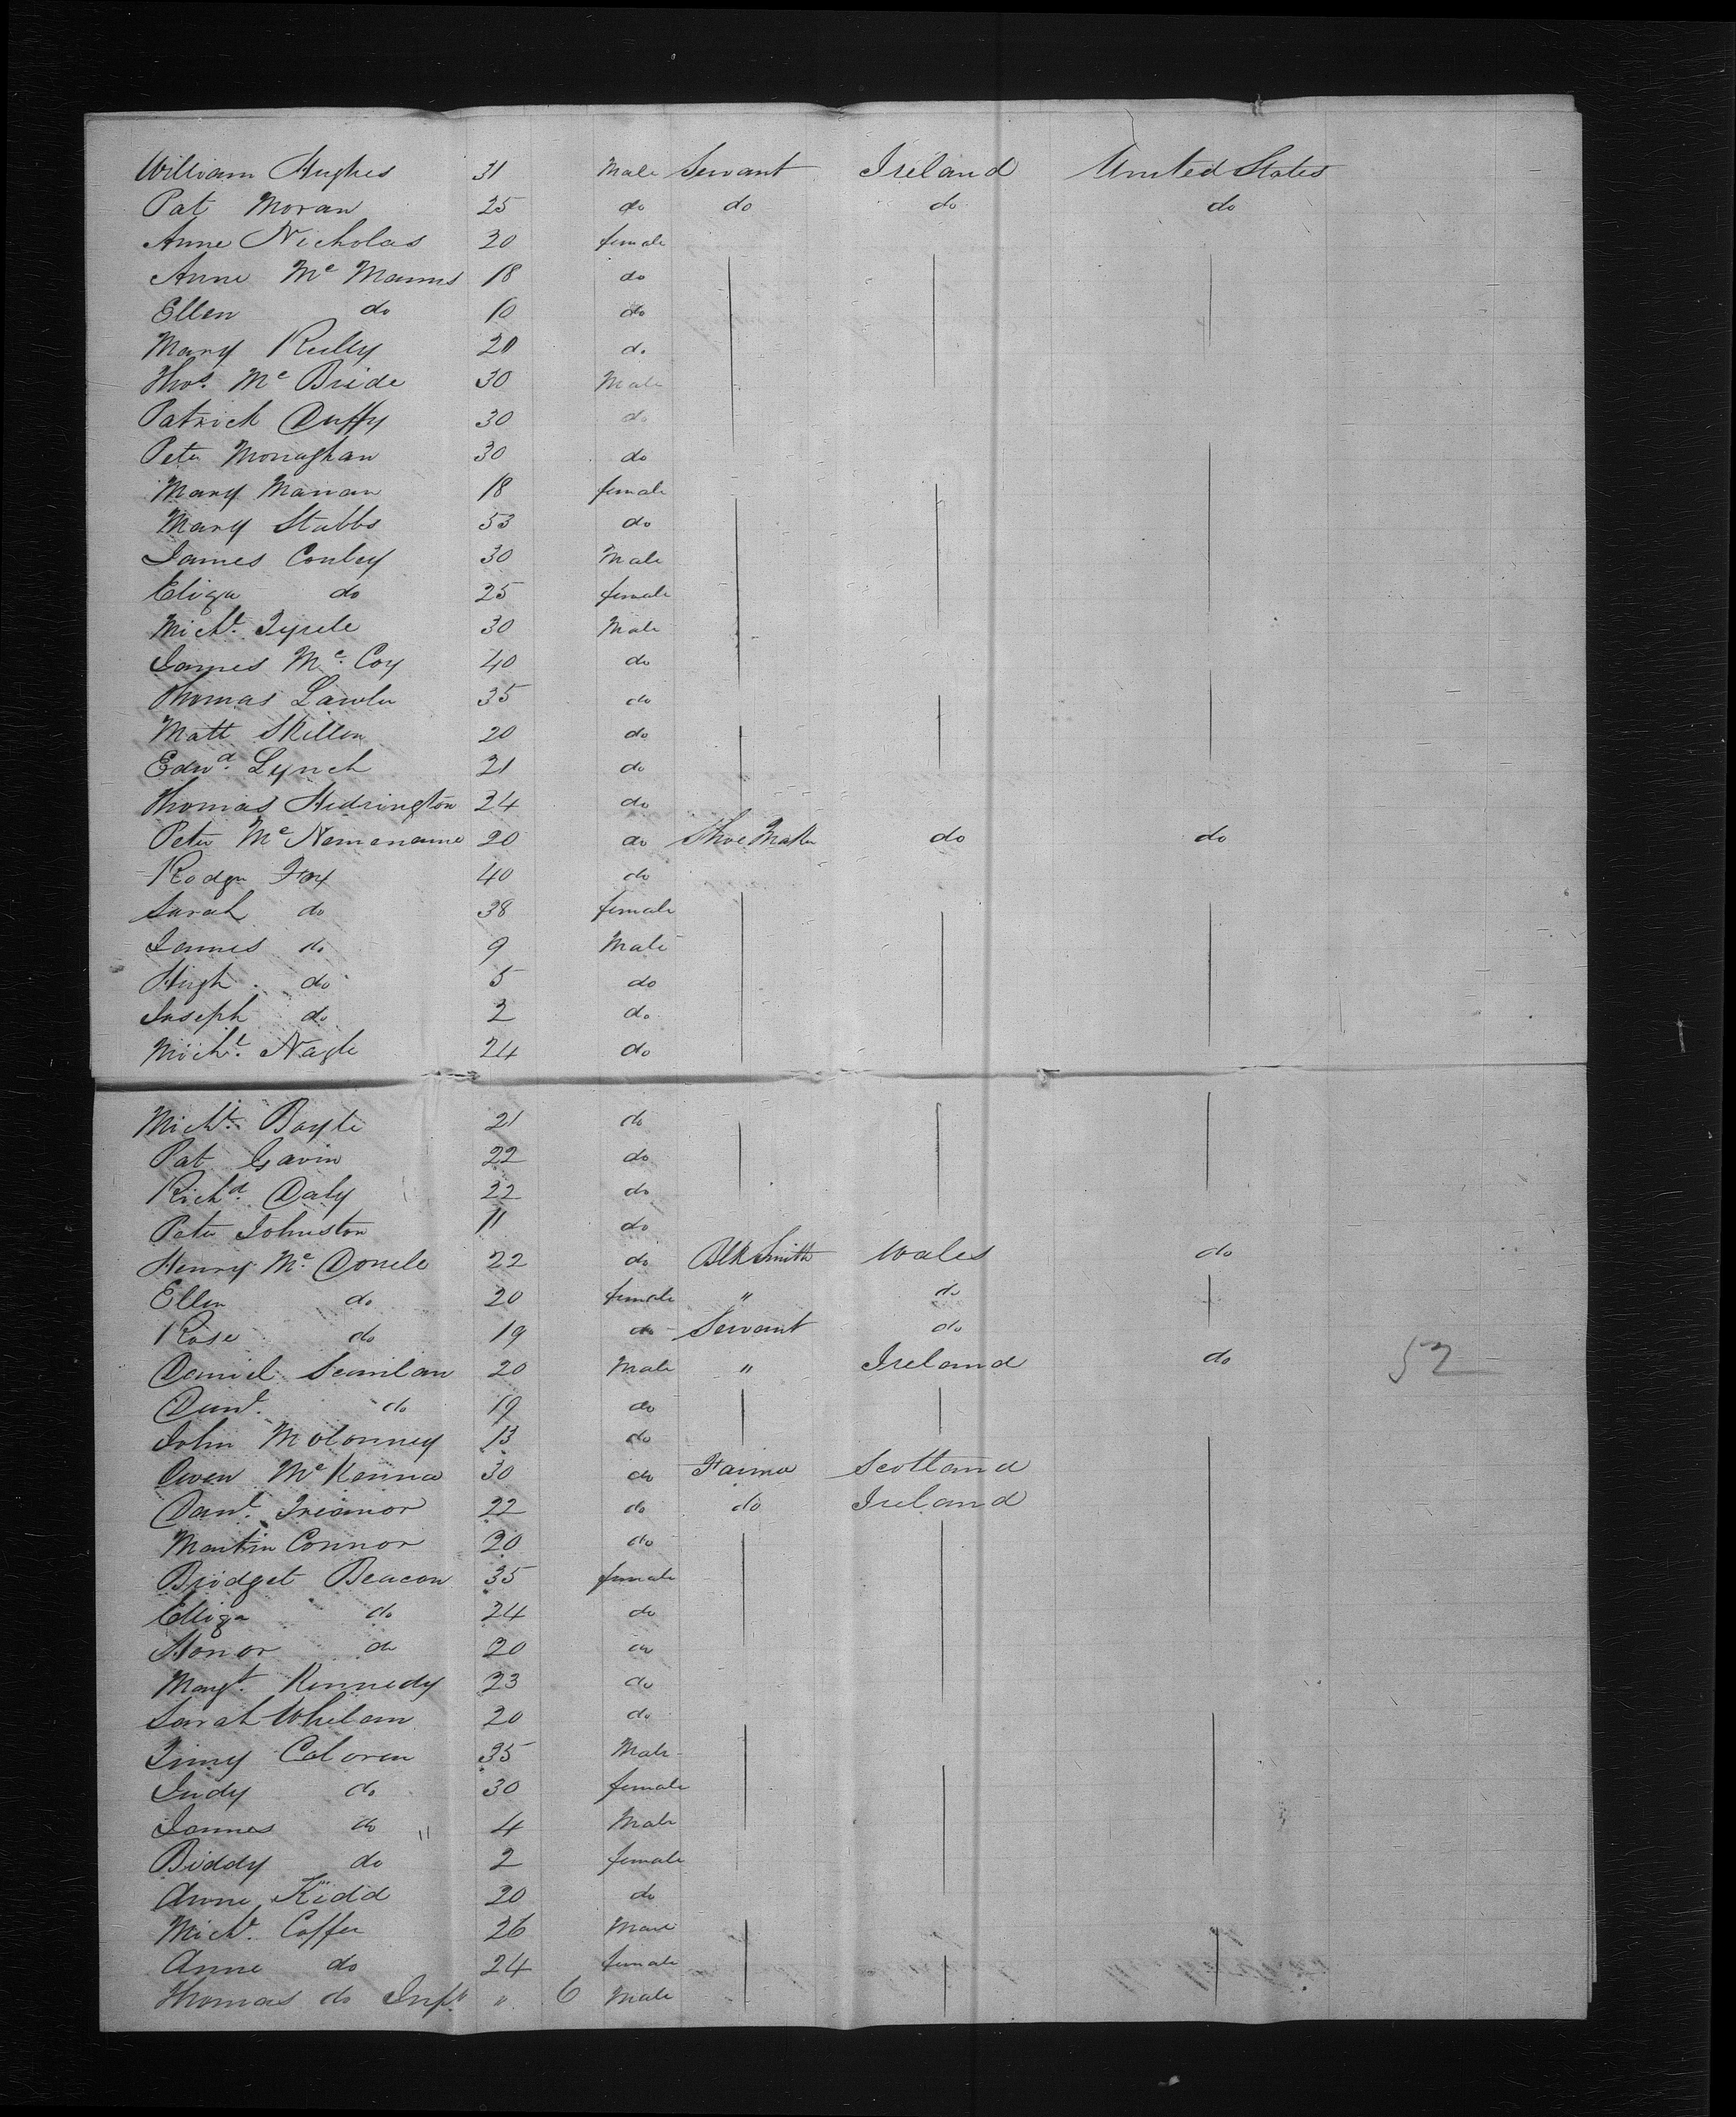 William Hughes 31 Male Servant Ireland United States
Pat Moran 25 do do do do
Anne Nicholas 20 female
Anne Mc Manus 18 do
Ellen do 10 do
Mary Reilly 20 do
Thos. Mc Bride 30 Male
Patrick Duffy 30 do
Peter Monaghan 30 do
Mary Manan 18 female
Mary Stubbs 53 do
James Conley 30 Male
Eliza do 25 female
Michl. 30 Male
James Mc Coy 40 do
Thomas Lawler 35 do
Matt Skillen 20 do
Edwd. Lynch 21 do
Thomas Hedrington 24 do
Peter Mc Nemename 20 do Shoe Maker do do
Rodger Fox 40 do
Sarah do 38 female
James do 9 Male
Hugh do 5 do
Joseph do 2 do
Michl. Nagle 24 do
Michl. Boyle 21 do
Pat Gavin 22 do
Richd. Daly 22 do
Peter Johnston 11 do
Henry Mc Donele 22 do Blk Smith Wales do
Ellen do 20 female " do
Rose do 19 do Servant do
Daniel Scanlan 20 Male " Ireland do 52
Danl. do 19 do
John Molonney 13 do
Owen Mc Kenna 30 do Farmer Scotland
Danl. Treanor 22 do do Ireland
Martin Connor 20 do
Bridget Beacon 35 female
Eliza do 24 do
Honor do 20 do
Margt. Kennedy 23 do
Sarah Whelam 20 do
Timy Coloren 35 Male
Judy do 30 female
James do " 4 Male
Biddy do 2 female
Anne Kidd 20 do
Michl. Coffer 26 Male
Anne do 24 female
Thomas do Inft " 6 Male